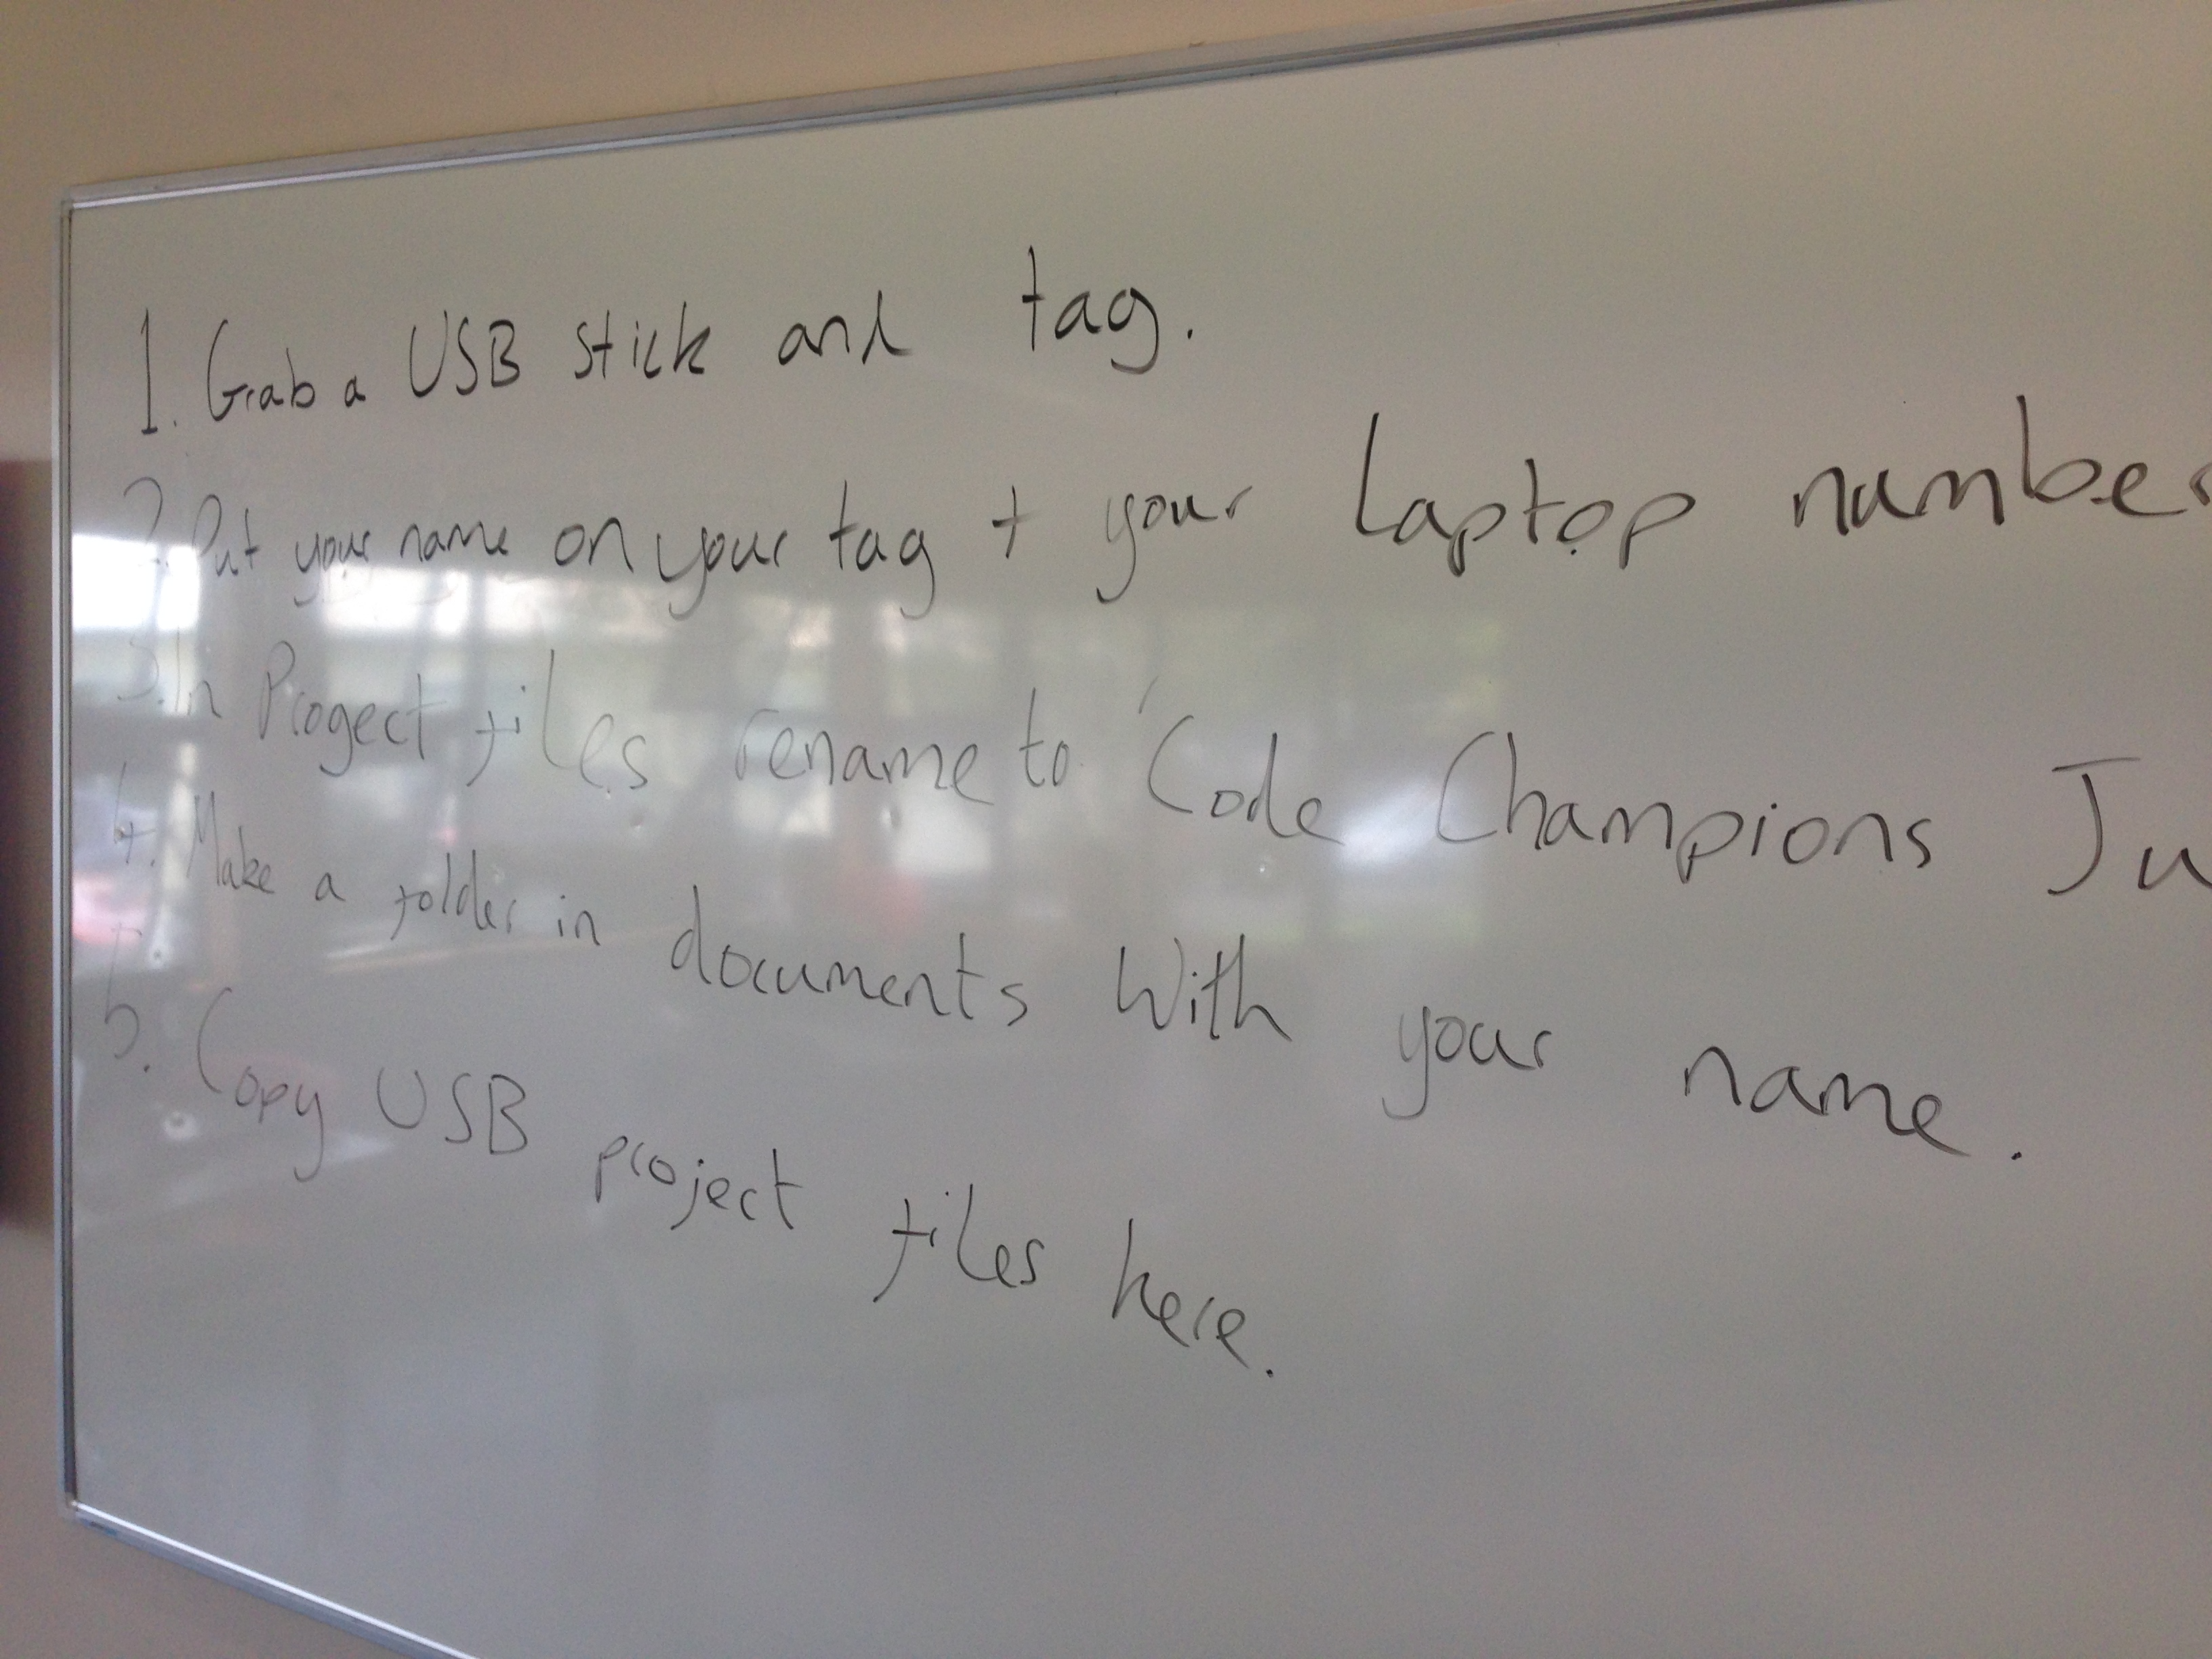 1. Grab a USB stick and tag.
2. Put your name on your tag + your laptop number
3. In Progect files rename to 'Code Champions Ju
4. Make a folder in documents With your name.
5. Copy USB project files here.